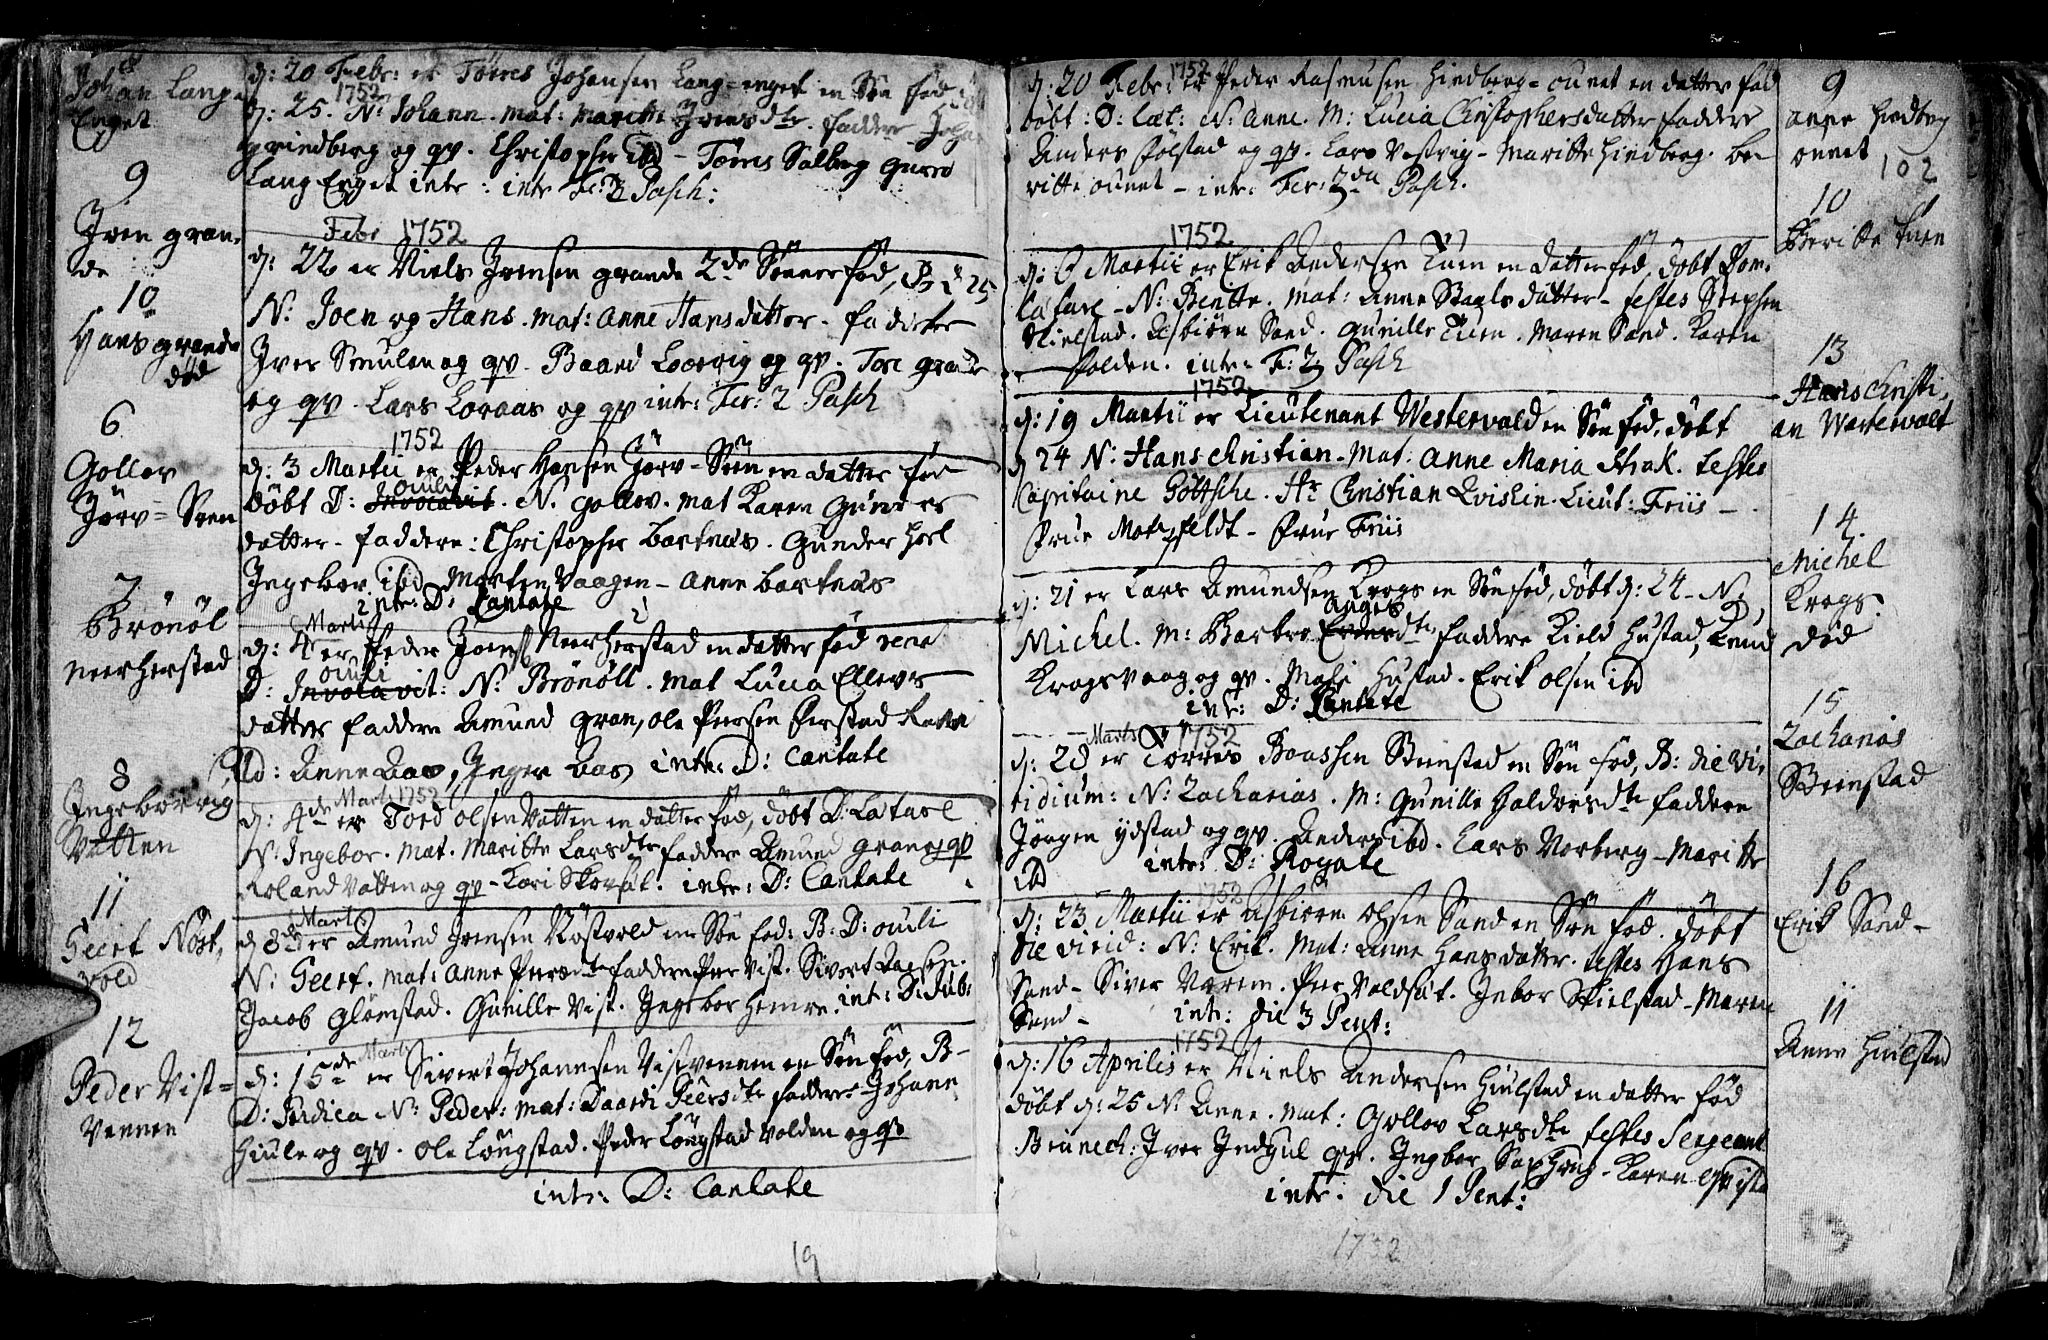 8
Johan Lang
Enget
9
Iven gran-
de
10
Hans grande
död
6
Gollov
Jörv = Sven
7
Brönöl
neerherstad
8
Ingeborrig
Vatten
11
Geert Nöst,
vold
12
Peder Vist=
Vennen
d: 20 Febr: er Törres Johansen Lang-enget en Sön fød
1752
d: 25. N: Johann. mat: Maritte Joensdtr. faddere Joha
grindberg og qv. Christopher ibd - Törres Salberg
Lang Enget intr: intr Fer: 3 Pasch:
Febr 1752
d: 22 er Niels Jvensen grande 2de Sönner fød, B: d 25
N: Joen og Hans. mat: Anne Hansdatter. faddere
Iver Smulen og qv. Baard Loorvig og qv. Tore grande
og qv. Lars Loraas og qv intr: Fer: 2 Pasch
1752
d: 3 Martii er Peder Hansen Jörv-Sven en datter fød
oculi
döbt D: Invocavit. N. gollov. mat Karen Gunders
datter - faddere: Christopher bartnas. Gunder Hoel
Ingebor ibid Morten Vaagen - Anne bartnas
intr: D: Cantate
Marti
d: 4 er Peder Joens Neerherstad en datter fød
oculi
D: Invocavit: N: Brönöll. mat Lucia Ellevs
datter faddere Amund gran, ole Persen Perstad
ibd: Anne Aas, Inger Aas intr: D: Cantate
Marti 1752
d: 4de er Tord olsen Vatten en datter fød, döbt D: Latare
N: Ingebor. mat. Maritte Larsdtr faddere Amund gran og qv
Roland Vatten og qv - Kari Skorsöt. intr: D: Cantate
Mart
d 8de er Amund Jvensen Nöstvold en Sön fød: B: D: oculi
N: Geert. mat: Anne Peersdtr faddere Peer Vist. Sivert
Jacob glömstad. Gunille Vist. Ingebor Hemre. int: D: Jub:
Marti
d: 15de er Sivert Johannsen Vistvennen en Sön fød, B-
D: Judica N: Peder: mat: Daardi Peersdtr faddere Johann
Hiule og qv. ole Löngstad. Peder Löngstad volden og qv
intr: D: Cantate
19
1752
d: 20 Febr: er Peder Rasmusen Hindberg-ounet en datter fød
döbt: D: Læt: N: Anne. M: Lucia Christophersdatter faddere
Anders Jölstad og qv. Lars Vestvig - Maritte Hindberg. be-
ritte ounet - intr: Fer: 2da Pasch.
1752
d: 6 Martii er Erik Andersen Tuen en datter fød, döbt Dom.
Latare - N: Beritte. mat: Anne Staalsdatter - testes Stephen
Skielstad. Asbiörn Sand. Gunille Tuen. Maren Sand. Karen
folden. intr: F: 2 Pasch
1752
d: 19 Martii er Lieutenant Westervald en Sön fød, döbt
d 24 N: Hans Christian. Mat: Anne Maria Strak. testes
Capitaine Göttsche. Hr Christian Qvislin. Lieut: Friis -
Frue Motzfeldt - Frue Friis
d: 21 er Lars Amundsen Krogs en Sön fød, döbt d: 24 - N:
Michel. M: Barbro dtr, faddere Kield Hustad, Knud
Krogsvaag og qv. Hustad. Erik olsen ibd
intr: D: Cantate
Marts 1752
d: 20 er Torres Baassen Steenstad en Sön fød, B: die vi-
ridium: N: Zacharias. M: Gunille Haldorsdtr faddere
Jörgen ydstad og qv. Anders ibd. Lars Norberg - Maritte
ibd intr: D: Rogate
1752
d: 23 Martii er Asbiörn olsen Sand en Sön fød. döbt
die virid: N: Erik. Mat: Anne Hansdatter. testes Hans
Sand - Siver Varem. Peer Voldsöt. Inbor Skielstad - Maren
Sand - intr: die 3 Pent:
1752
d: 16 Aprilis er Niels Andersen Hiulstad en datter fød
döbt d: 25 N: Anne. mat: Gollov Larsdtr testes Sergeant
Brunech: Iver Indgul qv. Ingbor - Karen
intr: die 1 Pent:
1732
9
anne Hindberg
ounet
102
10
Beritte Tuen
13
Hans Christi,
an Westervalt
14
Michel
Krogs.
död
15
Zacharias
Steenstad
16
Erik Sand-
11
Anne Hiulstad